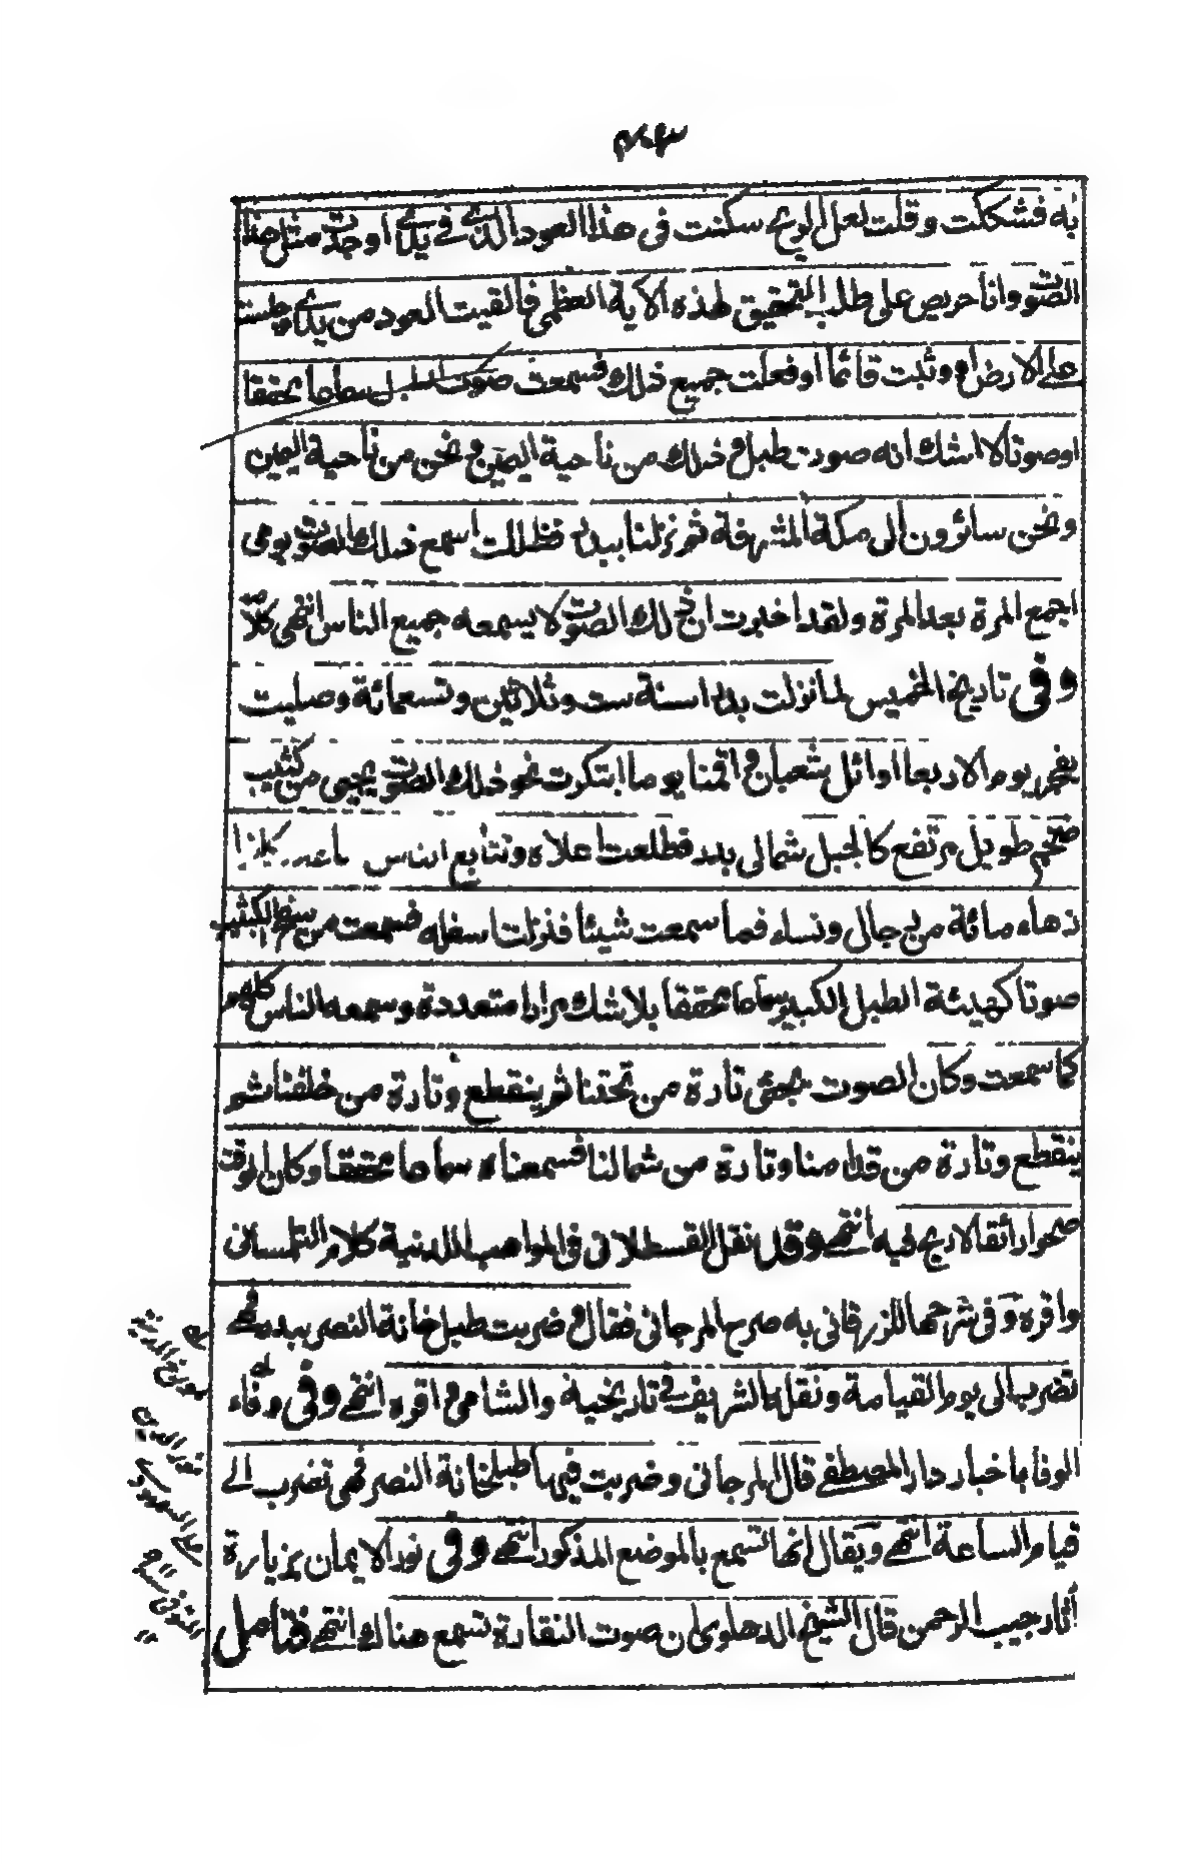 به فشككت وقلت لعل الريح سكنت فى هذا العود الذى فى يدى اوحدث مثل هذا
الصوت وانا حريص على طلب التحقيق لهذه الآية العظمى فالقيت العود من يدى وجلست
على الارض او وثبت قائما او فعلت جميع ذلك فسمعت صوت الطبل سماعا محققا
او صوتا لا اشك انه صوت طبل وذلك من ناحية اليمين ونحن من ناحية اليمين
ونحن سائرون الى مكة المشرفة ثم نزلنا ببدر فظللت اسمع ذلك الصوت يومى
اجمع المرة بعد المرة ولقد اخبرت ان ذلك الصوت لا يسمعه جميع الناس انتهى كلامه
وفى تاريخ الخميس لما نزلت بدرا سنة ست وثلاثين وتسعمائة وصليت
بفجر يوم الاربعا اوائل شعبان واقمنا يوما ابتكرت نحو ذلك الصوت يجيى من كثيب
ضخم طويل مرتفع كالجبل شمالى بدر فطلعت اعلاه وتتابع الناس
زهاء مائة من رجال ونساء فما سمعت شيئا فنزلت اسفله فسمعت من سفح الكثيب
صوتا كهيئة الطبل الكبير سماعا محققا بلا شك مرارا متعددة وسمعه الناس كلهم
كما سمعت وكان الصوت يجئى تارة من تحتنا ثم ينقطع وتارة من خلفنا ثم
ينقطع وتارة من قدامنا وتارة من شمالنا فسمعناه سماعا محققا وكان الوقت
صحوا رائقا لا ريح فيه انتهى وقد نقل القسطلانى فى المواهب اللدنية كلام التلمسانى
واقره وفى شرحها للزرقانى به صرح المرجانى فقال وضربت طبل خانة النصر ببدر فهى
تضرب الى يوم القيامة ونقله الشريف فى تاريخيه والشامى واقره انتهى وفى وفاء
الوفا باخبار دار المصطفى قال المرجانى وضربت فيها طبلخانة النصر فهى تضرب الى
قيام الساعة انتهى ويقال انها تسمع بالموضع المذكور انتهى وفى نور الايمان بزيارة
آثار حبيب الرحمن قال الشيخ الدهلوى ان صوت النقارة تسمع هناك انتهى فتامل
مورخ المدينة
نور الدين
على السمهودى
المتوفى سنه ٩١١